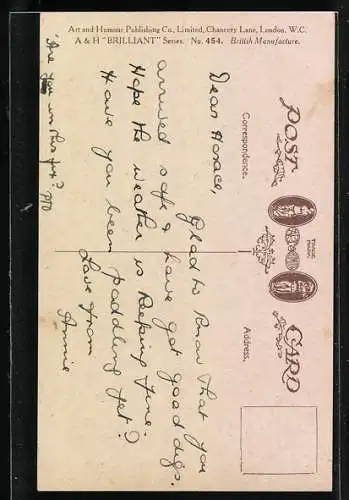 Art and Humour Publishing Co., Limited, Chancery Lane, London, W.C.
A & H "BRILLIANT" Series. No. 454. British Manufacture.
POST CARD
Correspondence.
Address.
Dear Horace,
Glad to know that you
arrived safe & have got good digs.
Hope the weather is keeping fine.
Have you been paddling yet?
Love from
Annie
Are you in this for? PTO